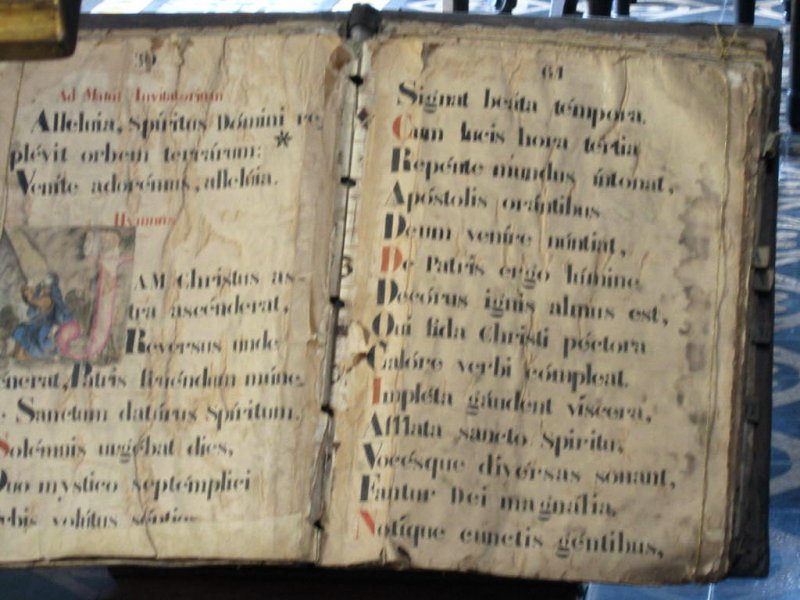 Ad Matut Invitatorium
Alleluia, Spíritus Dómini re
plévit orbem terrárum: *
Veníte adorémus, allelúia.
Hymnus
JAM Christus as-
tra ascénderat,
Revérsus unde
enerat, Patris fruéndum múne,
Sanctum datúrus Spíritum.
Solémnis urgébat dies,
Quo mystico septémplici
rbis volútus
61
Signat beáta témpora.
Cum lucis hora tértia
Repénte mundus íntonat,
Apóstolis orántibus
Deum veníre núntiat,
De Patris ergo lúmine
Decórus ignis almus est,
Qui fida Christi péctora
Calóre verbi cómpleat.
Impléta gáudent víscera,
Afflata sancto Spíritu,
Vocésque divérsas sonant,
Fantur Dei magnália,
Notíque cunctis géntibus,